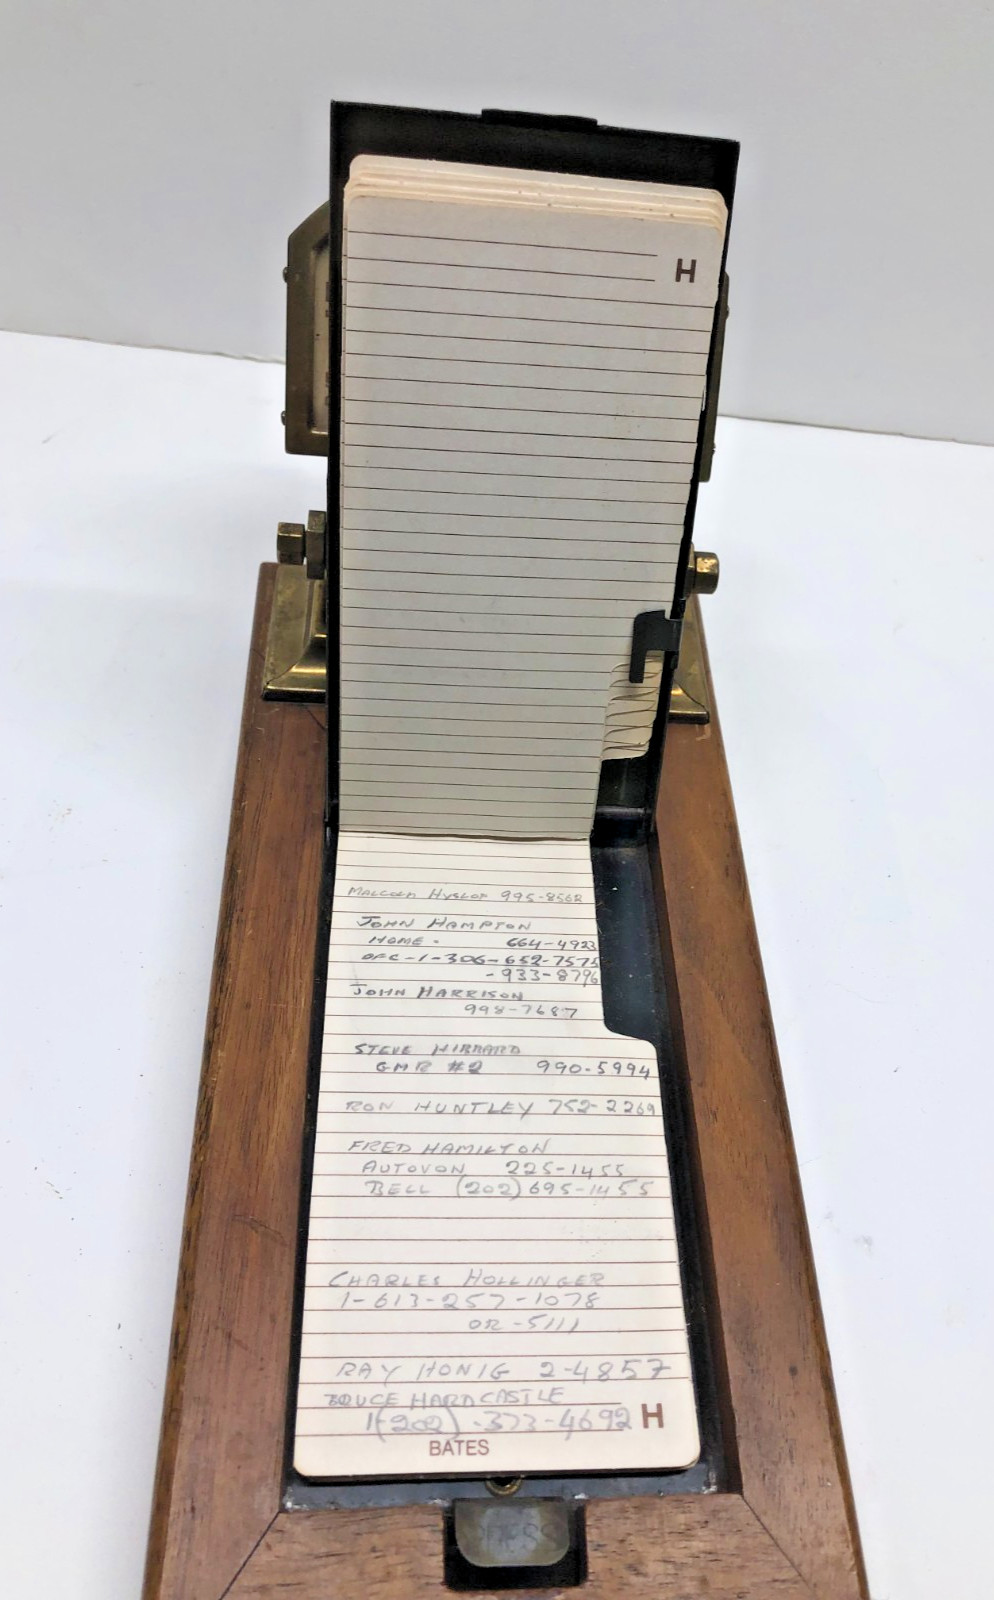 H
MALCOLM HYSLOP 995-8562
JOHN HAMPTON
HOME - 664-4923
OFC-1-306-652-7575
-933-8796
JOHN HARRISON
998-7687
STEVE HIBBARD
GMR #2 990-5994
RON HUNTLEY 752-2269
FRED HAMILTON
AUTOVON 225-1455
BELL (202) 695-1455
CHARLES HOLLINGER
1-613-257-1078
OR -5111
RAY HONIG 2-4857
BRUCE HARDCASTLE
1(202)-373-4692 H
BATES
PRESS